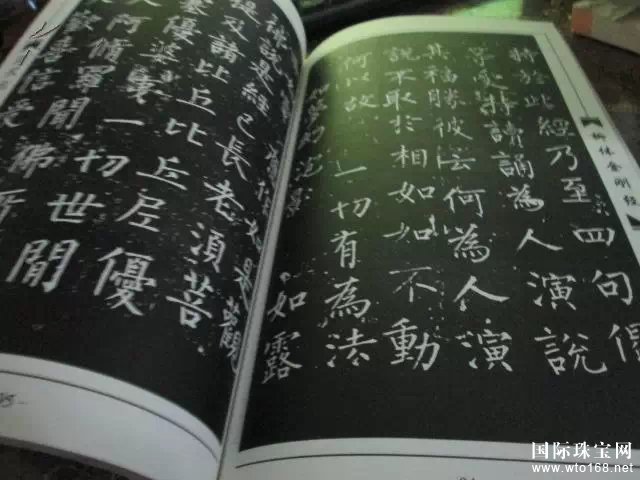 柳体金刚经
持於此經乃至四句偈
等受持讀誦為人演說
其福勝彼云何為人演
說不取於相如如不動
何以故 一切有為法
如夢幻泡影 如露
如是觀
佛說是經已長老須菩
提及諸比丘比丘尼優
塞優婆夷一切世間
人阿脩羅聞佛所
歡喜信受
国际珠宝网
www.wto168.net